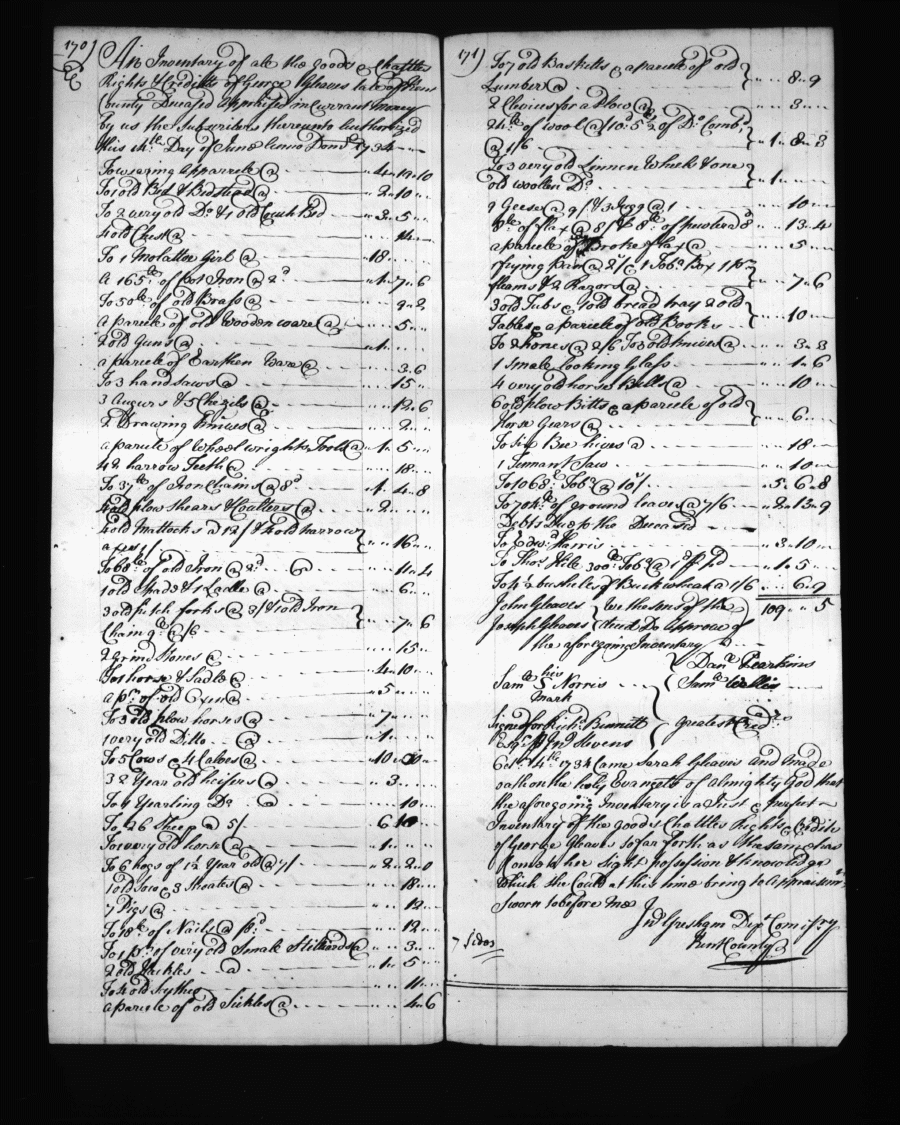 170)
An Inventory of all the goods & Chattles
Rights & Creditts of George Gleaves late of Kent
County Deceased Apprised in Currant money
by us the Subscribers thereunto Authorized
this 14th Day of June Anno Domi 1734
To wearing Apparrele @ 4 10 10
To 1 old Bed & Bedsteed @ 2 10
To 2 very old Do & 1 old Couch Bed 3 5
4 old Chest @ 14
To 1 Molattoe Girl @ 18
A 165lb of pot Iron @ 2d 1 7 6
To 50lb of old Brass @
a parcele of old wooden ware @ 5
2 old Guns @ 1
a parcele of Earthen Ware @ 3 6
To 3 hand saws @ 15
3 Augurs & 5 Chezils @ 12 6
2 Drawing knives @ 2
a parcele of wheel wrights Tools @ 1 5
42 harrow Teeth @ 18
To 37lb of Iron Chains @ 8d 1 4 8
4 old plow shears & Coalters @ 2
4 old Mattocks @ 12/ & 4 old harrow
axes / 16
To 68lb of old Iron @ 2d 11 4
1 old Spade & 1 Ladle @ 6
3 old pitch forks @ 3/ & 1 old Iron
Chain 9lb @ /6 7 6
2 Grind stones @ 15
To 1 horse & Sadle @ 4 10
a pr of old Oxen @ 5
To 3 old plow horses @ 7
1 very old Ditto @ 1
To 5 Cows & 4 Calves @ 10
3 2 Year old heifers @ 3
To 4 Yearling Do @ 10
To 26 Sheep @ 5/ 6 10
To 1 very old horse @ 1
To 6 hogs of 1½ Year old @ 7/ 2 2 0
1 old Sow & 3 Shoates @ 18
7 Pigs @ 12
To 18lb of Nails @ 8d 12
To 1 pr of very old Small Stilliards @ 3
2 old Hackles @ 1 5
To 4 old Sythes 11
a parcele of old Sickles @ 4 6
171)
To 7 old Basketts & a parcele of old
Lumber @ 8 9
2 Clevices for a Plow @ 3
24lb of wool @ 10d 5lb ½ of Do Comb'd
@ 1/6 1 8 3
To 3 very old Linnen Wheels & one
old woollen Do 1
9 Geese @ 9/ & 3 Jugg @ 1 10
8lb of flax @ 8/ & 8lb of pewter @ 8d 13 4
a parcele of Broke flax @ 5
1 frying Pan @ 2/6 1 Tobo Box 1 pr
fleams & 2 Razors @ 7 6
3 old Tubs & 1 old bread tray 2 old
Tables & a parcele of old Books 10
To 2 hones @ 2/6 To 3 old knives @ 3 3
1 Smale Looking Glass 1 6
4 very old horse Bells @ 10
6 old plow Bitts & a parcele of old
Horse Gears @ 6
To Six Bee hives @ 18
1 Tennant Saw 10
To 1068lb Tobo @ 10/ 5 6 8
To 704lb of ground leaves @ 7/6 2 13 9
Debts Due to the Deceased
To Edwd Harris 3 10
To Thos Hill 300lb Tobo @ 1 5
To 4½ bushells of Buckwheat @ 1/6 6 9
109 5
John Gleaves We the Sons of the
Joseph Gleaves Decd Do Approve of
the aforegoing Inventory
Danl Pearkins
his
Saml S Norris Saml Wallis
mark
Signed for Richd Bennett Greatest Credrs
Esqr P Jno Stevens
Octr 14th 1734 Came Sarah Gleaves and made
oath on the holy Evangels of Almighty God that
the aforegoing Inventory is a Just & perfect
Inventory of the goods Chattles Rights & Credits
of George Gleaves so far forth as the same has
Come to her Sight possession & knowledge
which she Could at this time bring to Appraismt
Sworn to before me
Jno Gresham Depy Comisry
Kent County
7 sides